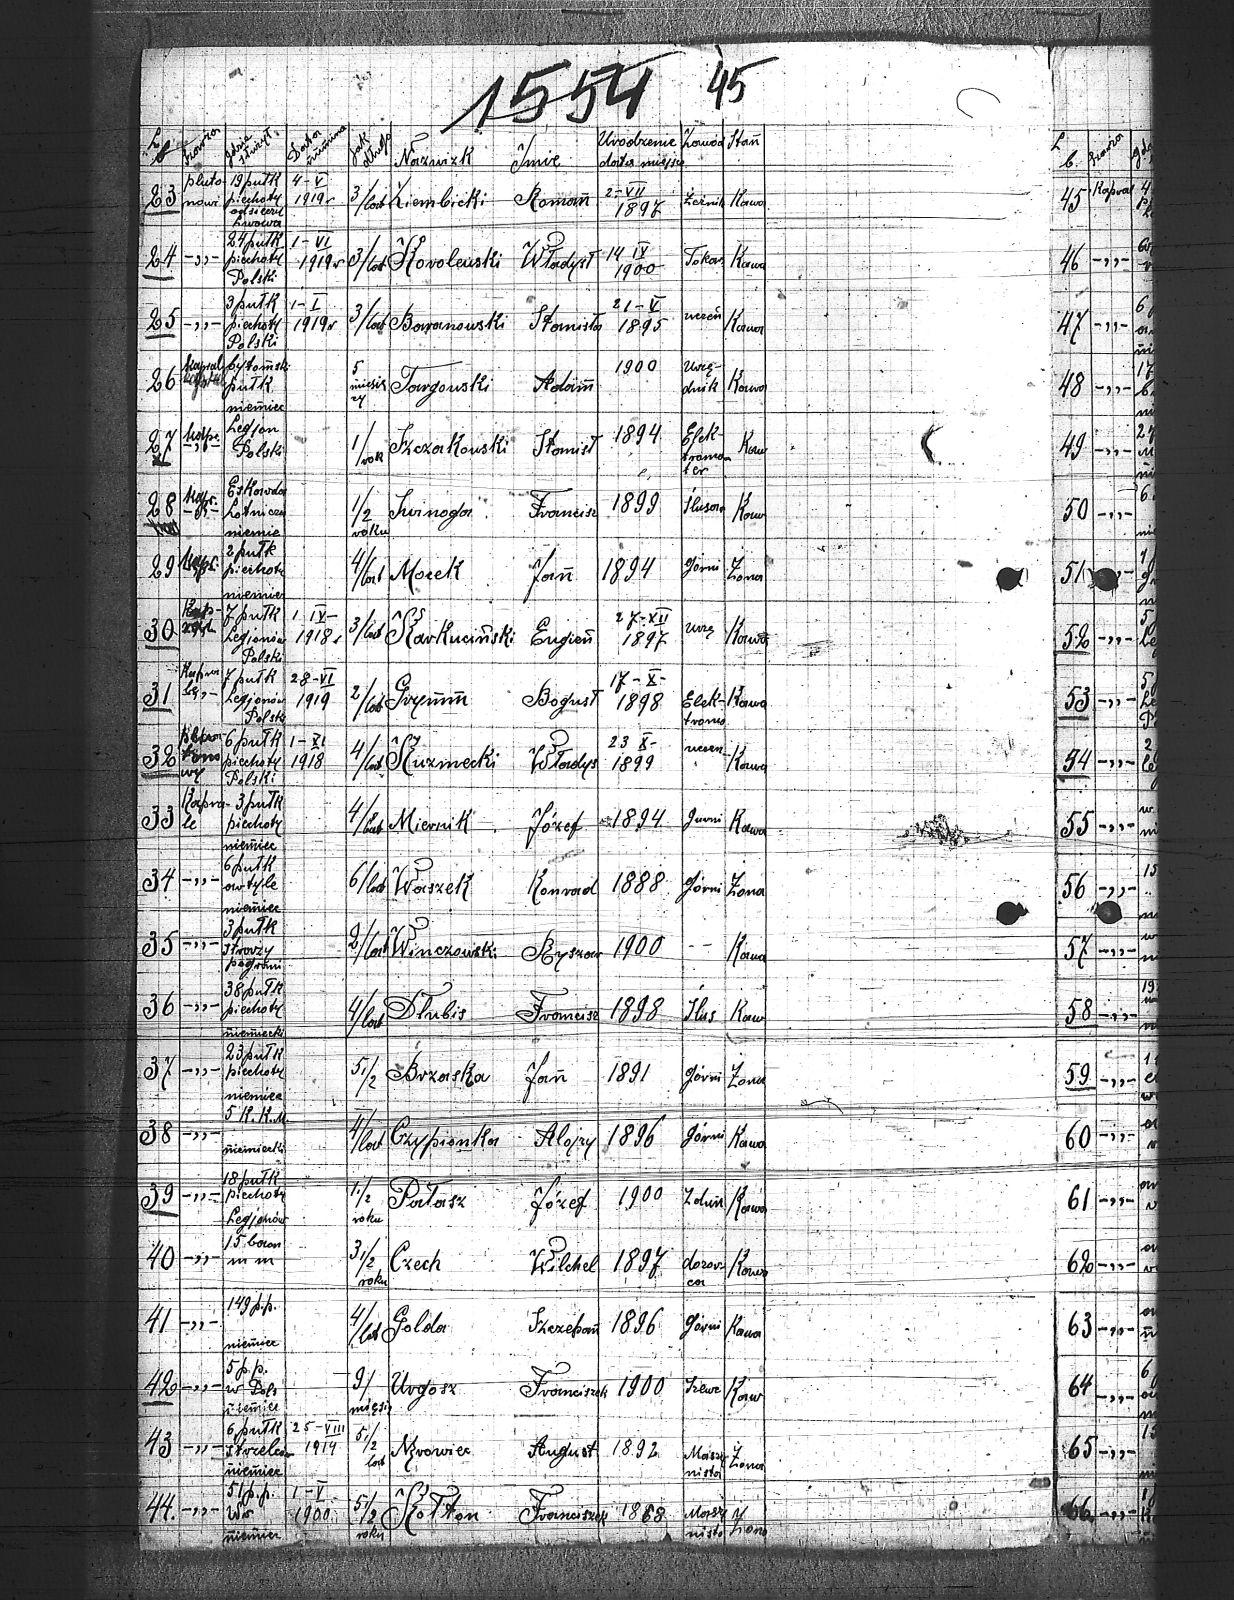 1554 45
L b. Szarża gdzie służył. Data miana Jak długo Nazwizk Jmie Urodzenie data miejsc Zawód Stan
23 pluto- 19 pułk 4-V 3/lat Ziembicki Roman 2-VII Kawa
nowi piechoty 1919r 1897
odsieczy
Lwowa
24 -,,- 24 pułk 1-VI 3/lat Kovolewski Władysł 14 IV Tokar Kawa
piechoty 1919r 1900
Polski
25 -,,- 3 pułk 1-I 3/lat Baranowski Stanisła 21-V uczeń Kawa
piechoty 1919r 1895
Polski
26 kapral bytomsk 5 Targowski Adam 1900 Urzę- Kawa
pułk miesię dnik
niemiec cy
27 kapr. Legjon 1/ Szczakowski Stanisł 1894 Elek- Kaw
-,,- Polski rok tromon
ter
28 kapr. Eskowda 1/2 Swinoga Francisz 1899 Ślusar Kaw
Lotnicza roku
niemie
29 kapr. 2 pułk 4/lat Macek Jan 1894 Górni Żona
piechota
niemiec
30 Kap- 7 pułk 1 IV- 3/lat Karkuciński Eugien 27-XII urzę Kawa
ral Legjonów 1918r 1897
Polski
31 Kapra 7 pułk 28-VI 2/lat Grymm Bogusł 17-X- Elek- Kawa
le,- Legjonów 1919 1898 tromo
Polski
32 6 pułk 1-XI 4/lat Kuzmecki Władys 23 X- uczen Kawa
piechoty 1918 1899
wy Polski
33 Kapra- 3 pułk 4/lat Miernik Józef 1894 Gurni Kawa
le piechoty
niemiec
34 -,,- 6 pułk 6/lat Waszek Konrad 1888 Górni Żona
artyle
niemiec
35 -,,- 3 pułk 2/lat Winczowski Ryszar 1900 -- Kawa
strazy
pograni
36 -,,- 38 pułk 4/lat Dłubis Francisz 1898 Ślus Kaw
piechoty
niemiecki
37 -,,- 23 pułk 5 1/2 Brzaska Jan 1891 Górni Żona
piechoty
niemiec
38 -,,- 5 K.K.M 4/lat Czypionka Alojzy 1896 Górni Kawa
niemiecki
39 -,,- 18 pułk 1 1/2 Patasz Józef 1900 Zdun Kawa
piechoty roku
Legjonów
40 -,,- 15 baon 3 1/2 Czech Wilchel 1897 dozor- Kawa
m m roku ca
41 -,,- 149 p.p. 4/lat Golda Szczepan 1896 Górni Kawa
niemiec
42 -,,- 5 p.p. 9/ Urgosz Franciszek 1900 Szewc Kaw
w Pols miesię
niemiec
43 -,,- 6 pułk 25-VIII 5 1/2 August 1892 Maszy Żona
strzelców 1914 lat nista
niemiec
44. -,,- 51 p.p. 1-V 5 1/2 Kołton Franciszek 1868 Maszy Żona
Wr 1900 roku nista
niemiec
L b. Szarża
45 Kapral
46 -,,-
47 -,,-
48 -,,-
49 -,,-
50 -,,-
51
52 -,,-
53 -,,-
54 -,,-
55 -,,-
56 -,,-
57 -,,-
58 -,,-
59 -,,-
60 -,,-
61 -,,-
62 -,,-
63 -,,-
64 -,,-
65 -,,-
66 -,,-